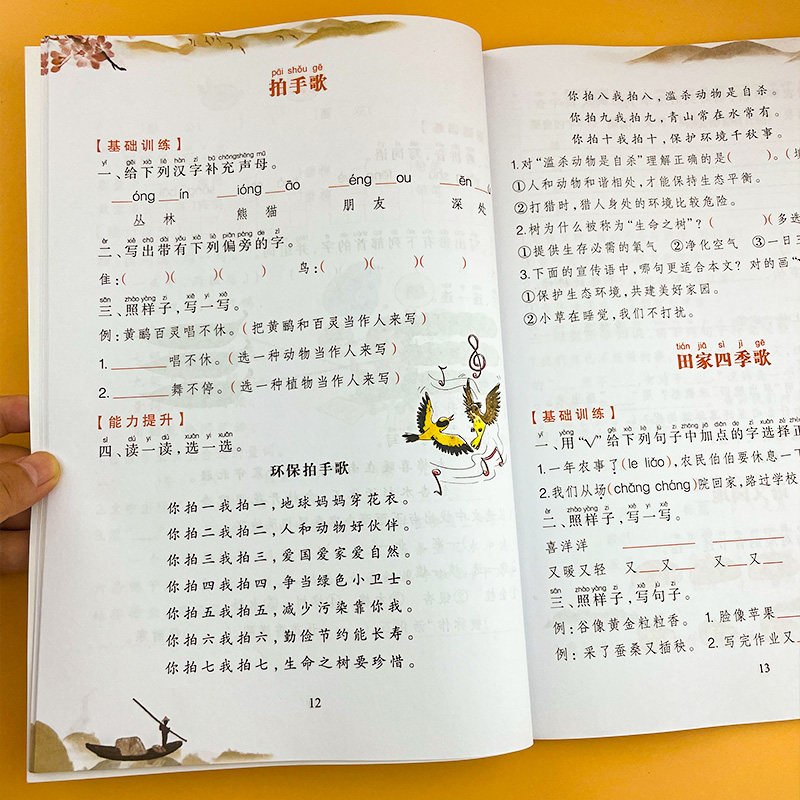 pāi shǒu gē
拍手歌
【基础训练】
yī gěi xià liè hàn zì bǔ chōng shēng mǔ
一、给下列汉字补充声母。
___óng ___ín ___ióng ___āo ___éng ___ou ___ēn ___
丛 林 熊 猫 朋 友 深 处
èr xiě chū dài yǒu xià liè piān páng de zì
二、写出带有下列偏旁的字。
隹：( )( )( ) 鸟：( )( )( )
sān zhào yàng zi xiě yì xiě
三、照样子，写一写。
例：黄鹂百灵唱不休。(把黄鹂和百灵当作人来写)
1.______唱不休。(选一种动物当作人来写)
2.______舞不停。(选一种植物当作人来写)
【能力提升】
sì dú yì dú xuǎn yì xuǎn
四、读一读，选一选。
环保拍手歌
你拍一我拍一，地球妈妈穿花衣。
你拍二我拍二，人和动物好伙伴。
你拍三我拍三，爱国爱家爱自然。
你拍四我拍四，争当绿色小卫士。
你拍五我拍五，减少污染靠你我。
你拍六我拍六，勤俭节约能长寿。
你拍七我拍七，生命之树要珍惜。
12
你拍八我拍八，滥杀动物是自杀。
你拍九我拍九，青山常在水常有。
你拍十我拍十，保护环境千秋事。
1.对“滥杀动物是自杀”理解正确的是( )。(
①人和动物和谐相处，才能保持生态平衡。
②打猎时，猎人身处的环境比较危险。
2.树为什么被称为“生命之树”？( )(多选
①提供生存必需的氧气 ②净化空气 ③一日三
3.下面的宣传语中，哪句更适合本文？对的画“
①保护生态环境，共建美好家园。
②小草在睡觉，我们不打扰。
tián jiā sì jì gē
田家四季歌
【基础训练】
yī yòng gěi xià liè jù zi zhōng jiā diǎn de zì xuǎn zé zhèng
一、用“√”给下列句子中加点的字选择正
1.一年农事了(le liǎo)，农民伯伯要休息一下
2.我们从场(chǎng cháng)院回家，路过学校
èr zhào yàng zi xiě yì xiě
二、照样子，写一写。
喜洋洋 ______ ______
又暖又轻 又__又__ 又__
sān zhào yàng zi xiě jù zi
三、照样子，写句子。
例：谷像黄金粒粒香。 1.脸像苹果___
例：采了蚕桑又插秧。 2.写完作业又
13